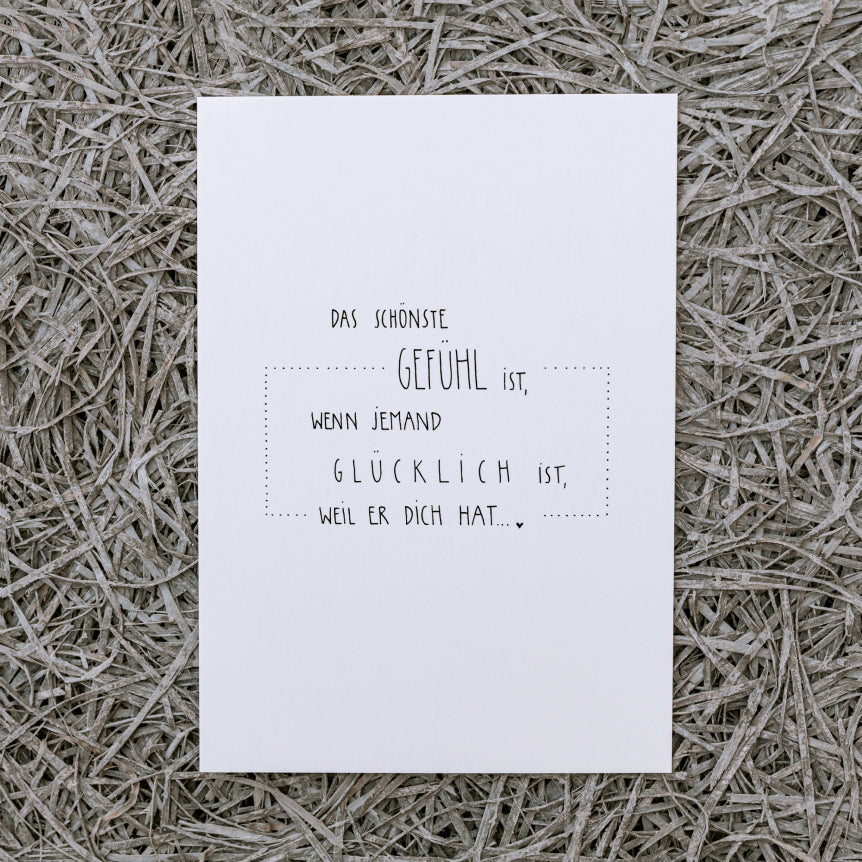 DAS SCHÖNSTE
GEFÜHL iST,
WENN JEMAND
GLÜCKLiCH iST,
WEiL ER DiCH HAT... ♥